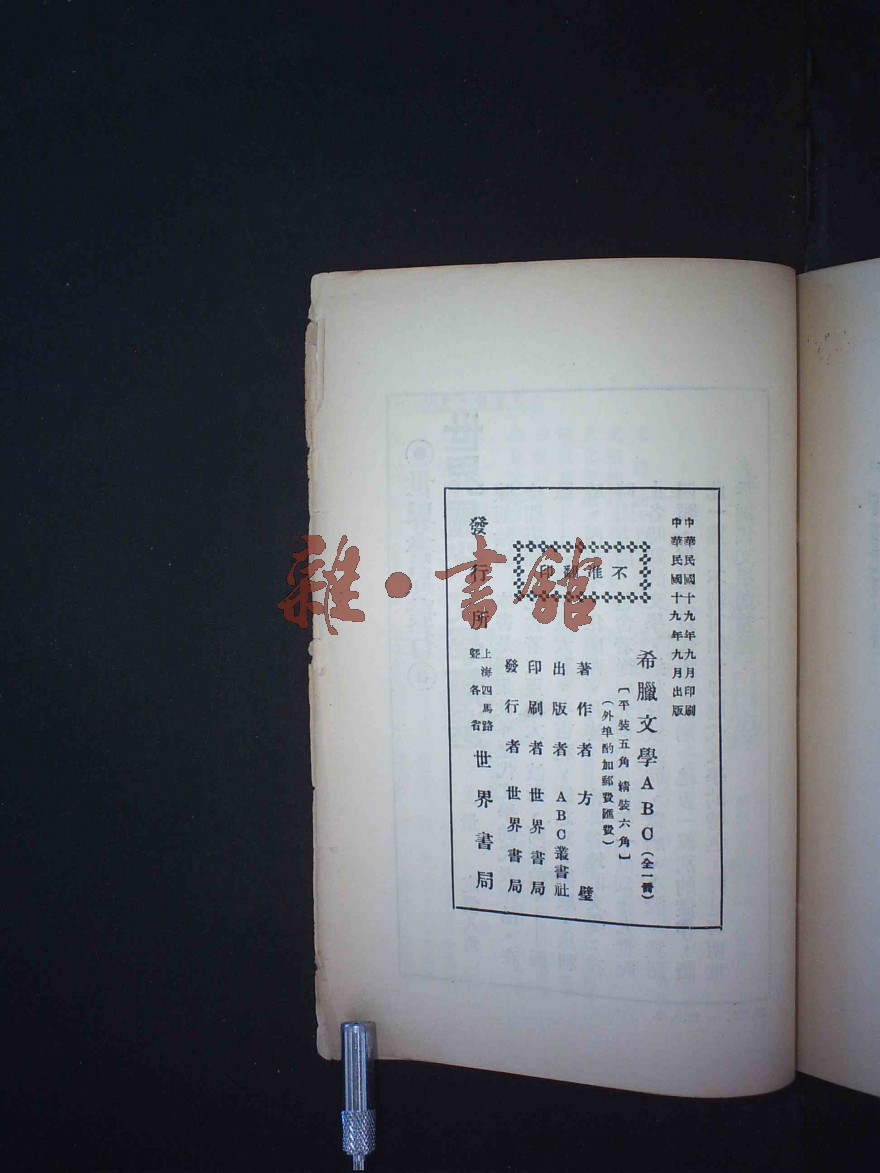 中華民國十九年九月印刷
中華民國十九年九月出版
希臘文學ABC（全一冊）
［平裝五角 精裝六角］
（外埠酌加郵費匯費）
不准翻印
著作者 方璧
出版者 ABC叢書社
印刷者 世界書局
發行者 世界書局
發行所 上海四馬路暨各省 世界書局
雜·書館